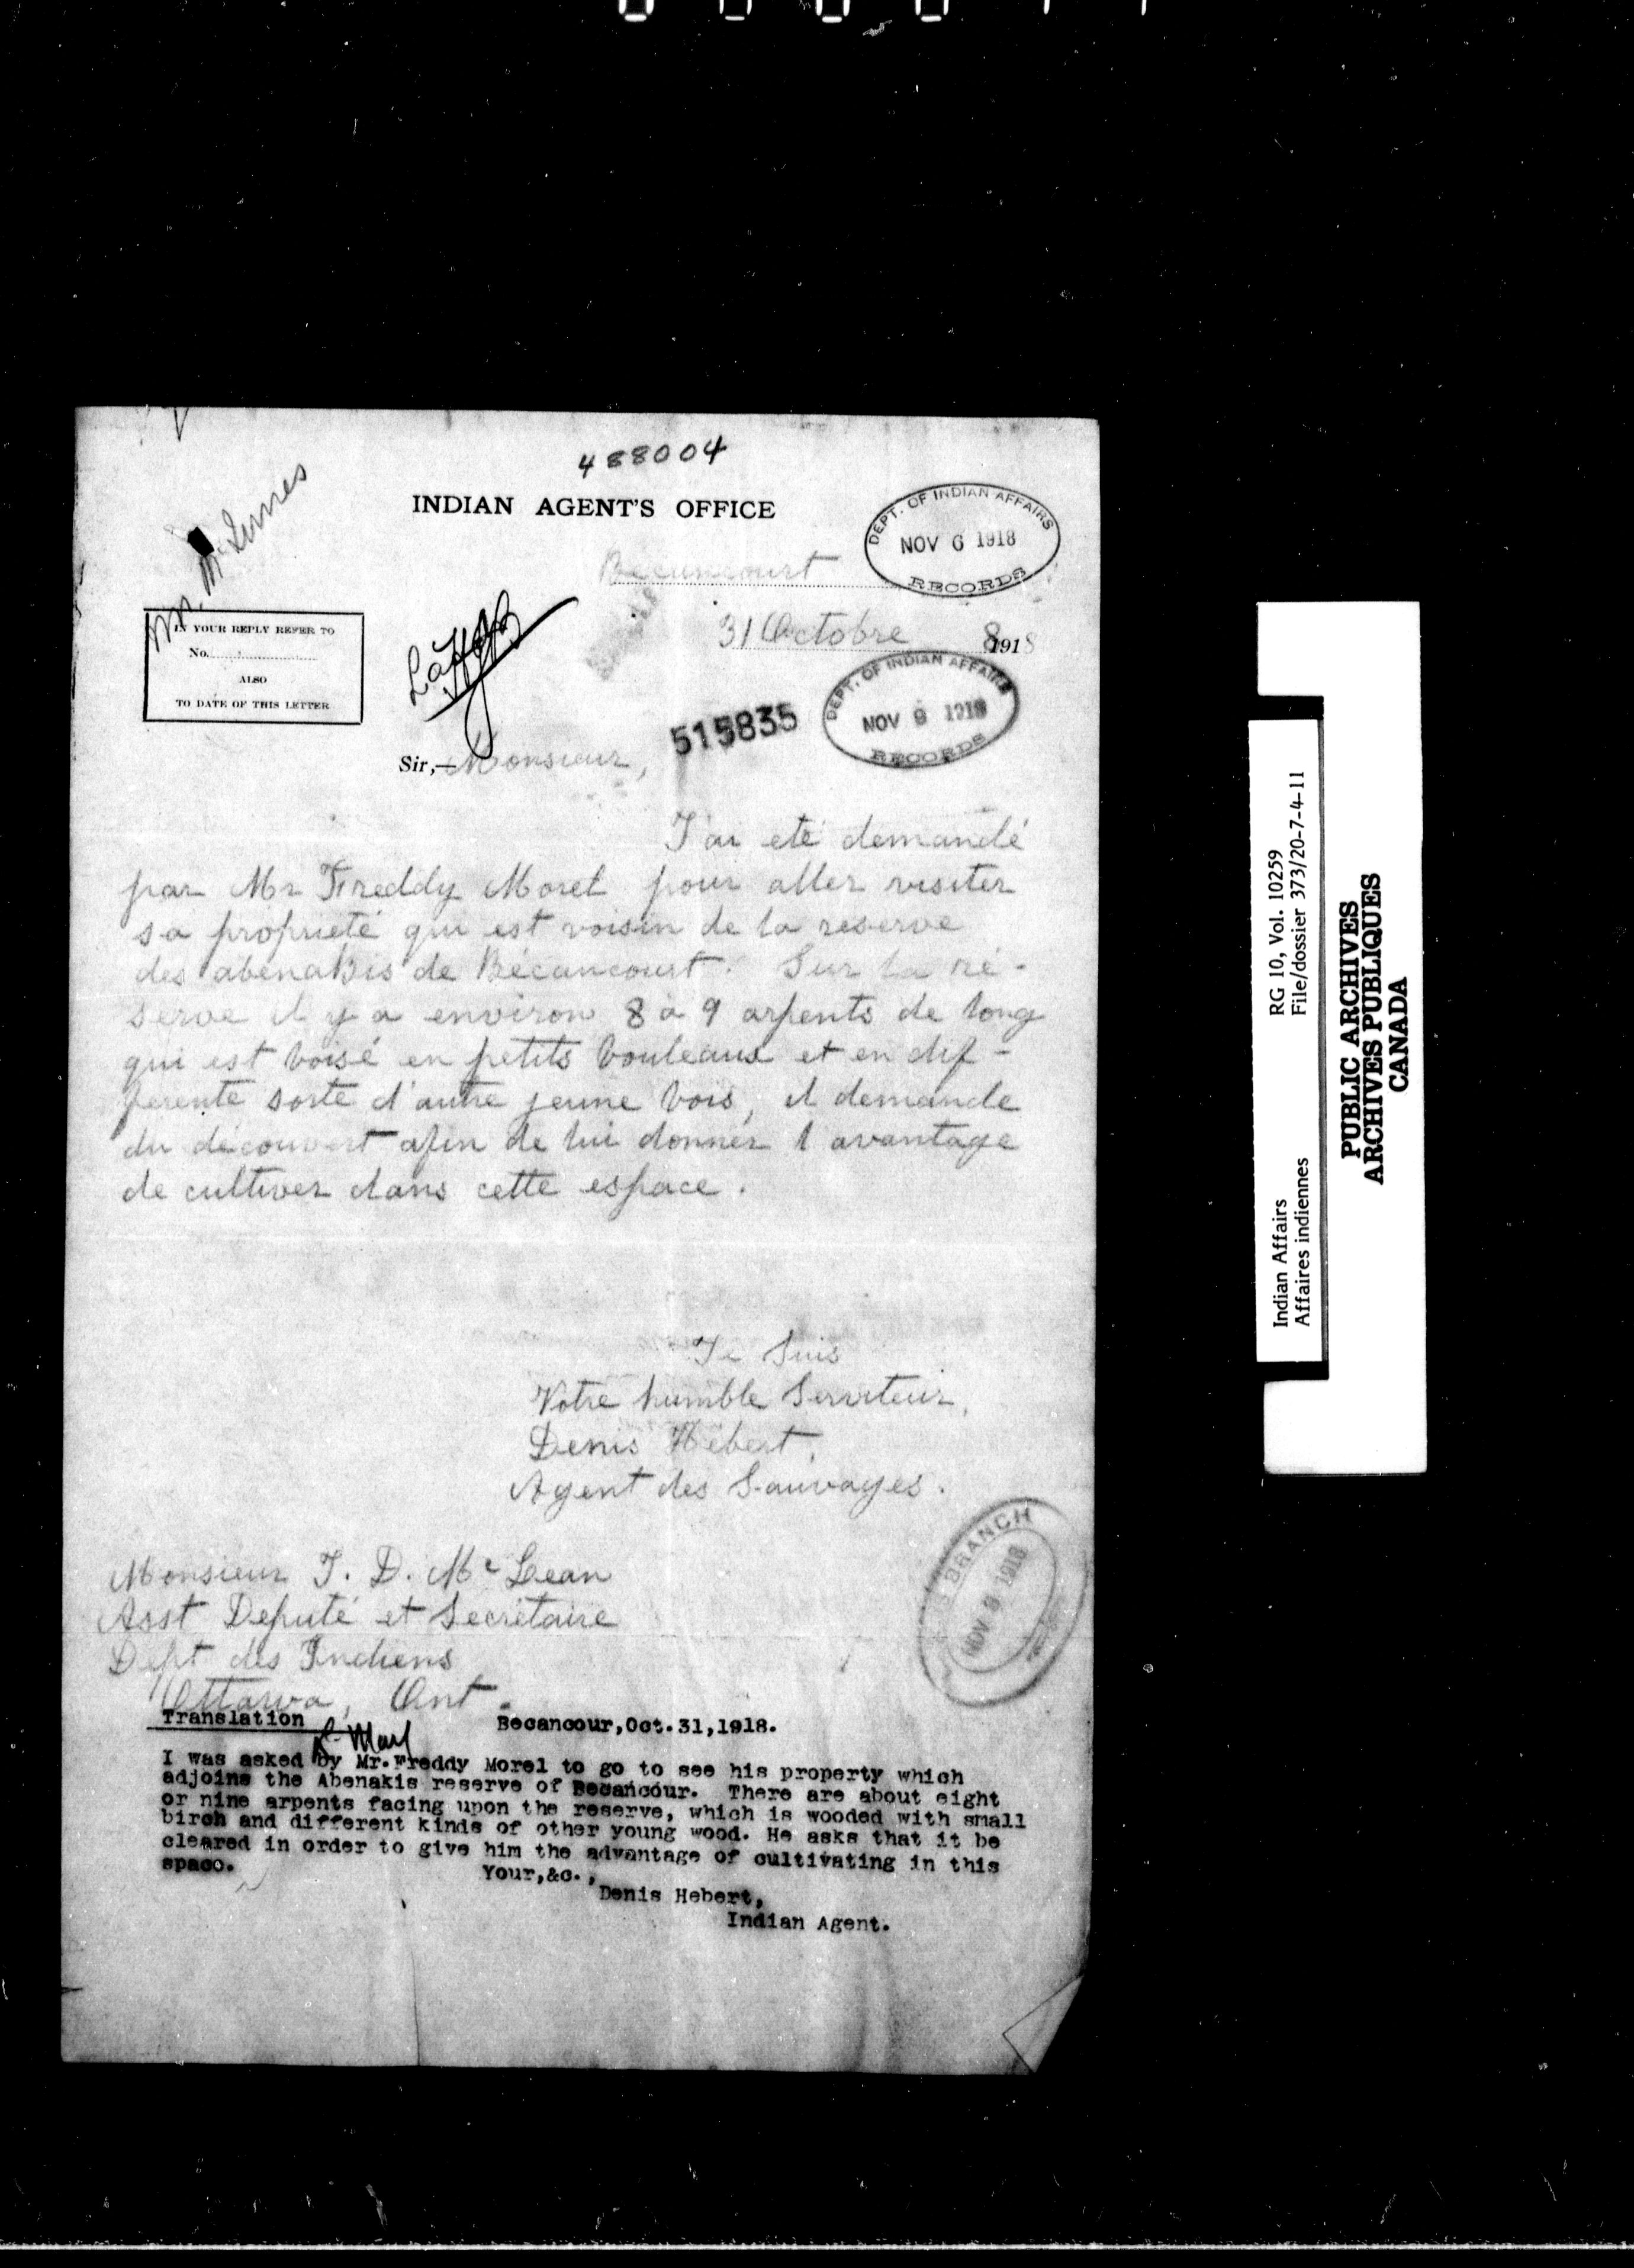 488004
Mr. McInnes
INDIAN AGENT'S OFFICE
DEPT. OF INDIAN AFFAIRS
NOV 6 1918
RECORDS
Becancourt
31 Octobre 8 1918
IN YOUR REPLY REFER TO
No.
ALSO
TO DATE OF THIS LETTER
515835
DEPT. OF INDIAN AFFAIRS
NOV 9 1918
RECORDS
Sir,— Monsieur,
J'ai eté demandé
par Mr Freddy Morel pour aller visiter
sa proprieté qui est voisin de la reserve
des abenakis de Bécancourt. Sur la ré-
serve il y a environ 8 a 9 arpents de long
qui est boisé en petits bouleaux et en dif-
ferente sorte d'autre jeune bois, il demande
du découvert afin de lui donner l avantage
de cultiver dans cette espace.
Je Suis
Votre humble Serviteur,
Denis Hébert,
Agent des Sauvages.
BRANCH
NOV 9 1918
Monsieur J. D. Mc Lean
Asst Deputé et Secrétaire
Dept des Indiens
Ottawa, Ont.
Translation
Becancour,Oct.31,1918.
I was asked by Mr.Freddy Morel to go to see his property which
adjoins the Abenakis reserve of Becancour. There are about eight
or nine arpents facing upon the reserve, which is wooded with small
birch and different kinds of other young wood. He asks that it be
cleared in order to give him the advantage of cultivating in this
space.
Your,&c.,
Denis Hebert,
Indian Agent.
Indian Affairs RG 10, Vol. 10259
Affaires indiennes File/dossier 373/20-7-4-11
PUBLIC ARCHIVES
ARCHIVES PUBLIQUES
CANADA